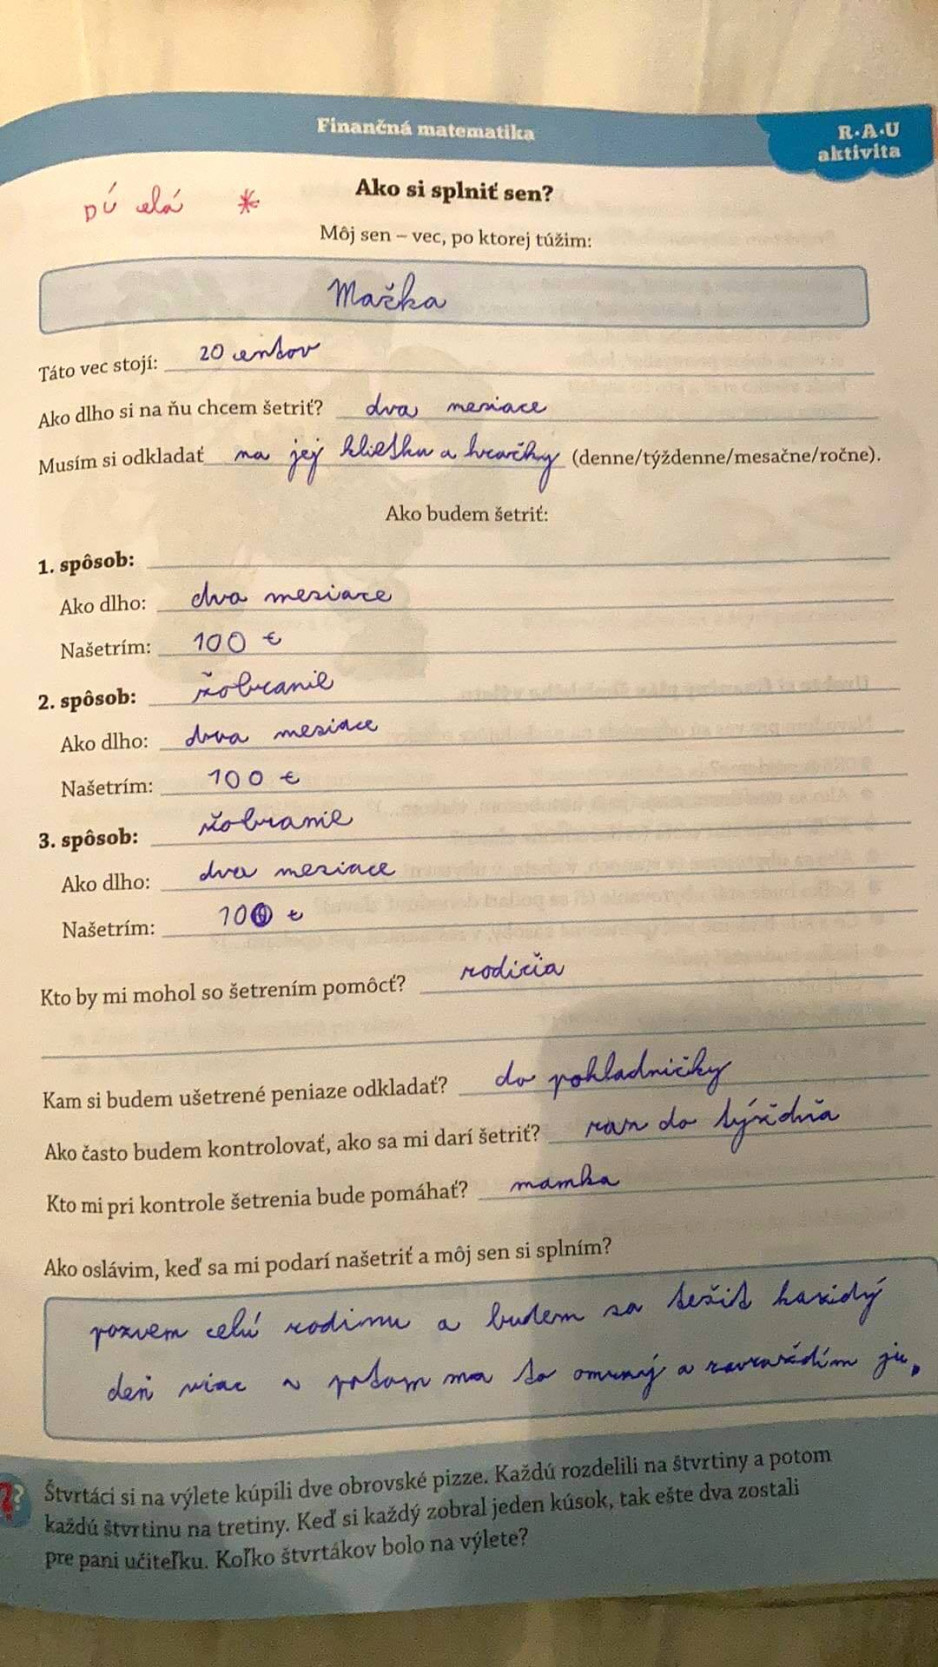 Finančná matematika
R·A·U
aktivita
DÚ celá *
Ako si splniť sen?
Môj sen – vec, po ktorej túžim:
Mačka
Táto vec stojí: 20 entov
Ako dlho si na ňu chcem šetriť? dva mesiace
Musím si odkladať na jej klietku a hračky (denne/týždenne/mesačne/ročne).
Ako budem šetriť:
1. spôsob:
Ako dlho: dva mesiace
Našetrím: 100 €
2. spôsob: žobranie
Ako dlho: dva mesiace
Našetrím: 100 €
3. spôsob: žobranie
Ako dlho: dva mesiace
Našetrím: 100 €
Kto by mi mohol so šetrením pomôcť? rodičia
Kam si budem ušetrené peniaze odkladať? do pokladničky
Ako často budem kontrolovať, ako sa mi darí šetriť? raz do týždňa
Kto mi pri kontrole šetrenia bude pomáhať? mamka
Ako oslávim, keď sa mi podarí našetriť a môj sen si splním?
pozvem celú rodinu a budem sa tešiť každý
deň viac a potom ma to omrzí a
Štvrtáci si na výlete kúpili dve obrovské pizze. Každú rozdelili na štvrtiny a potom
každú štvrtinu na tretiny. Keď si každý zobral jeden kúsok, tak ešte dva zostali
pre pani učiteľku. Koľko štvrtákov bolo na výlete?